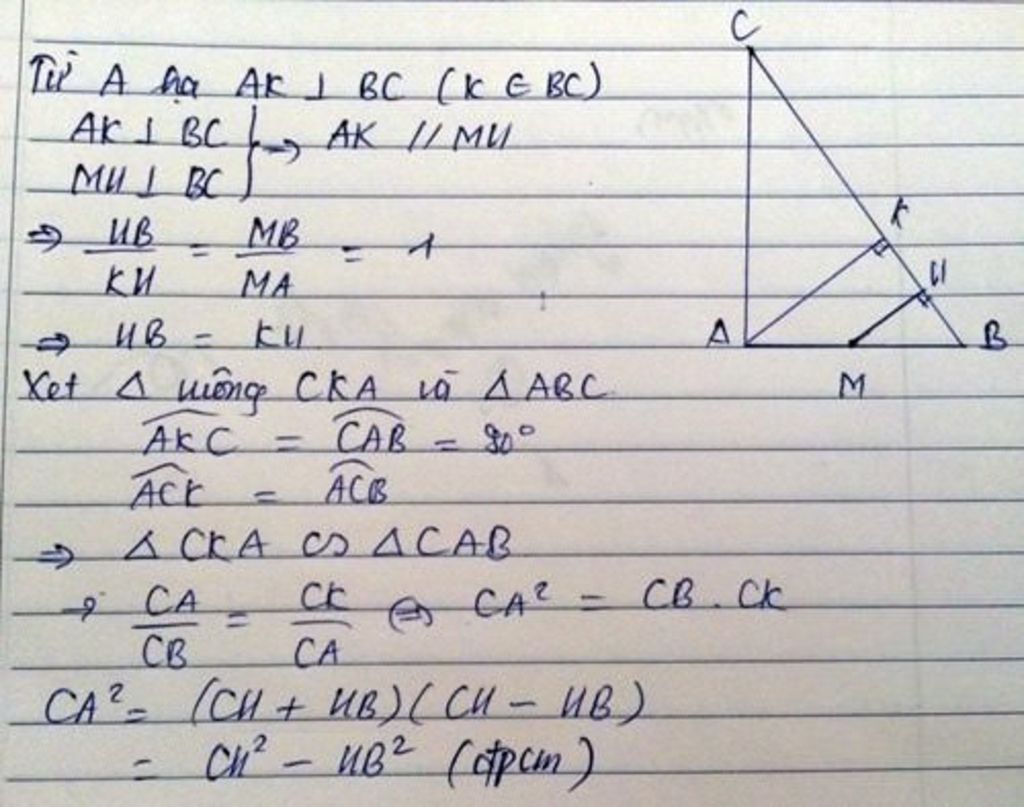 Từ A hạ AK ⊥ BC (K ∈ BC)
AK ⊥ BC
MH ⊥ BC } → AK // MH
⇒ HB/KH = MB/MA = 1
⇒ HB = KH
Xét Δ vuông CKA và ΔABC
AKC = CAB = 90°
ACK = ACB
⇒ Δ CKA ∽ ΔCAB
→ CA/CB = CK/CA ⇔ CA² = CB . CK
CA² = (CH + HB)(CH - HB)
= CH² - HB² (đpcm)
C
K
H
A
B
M